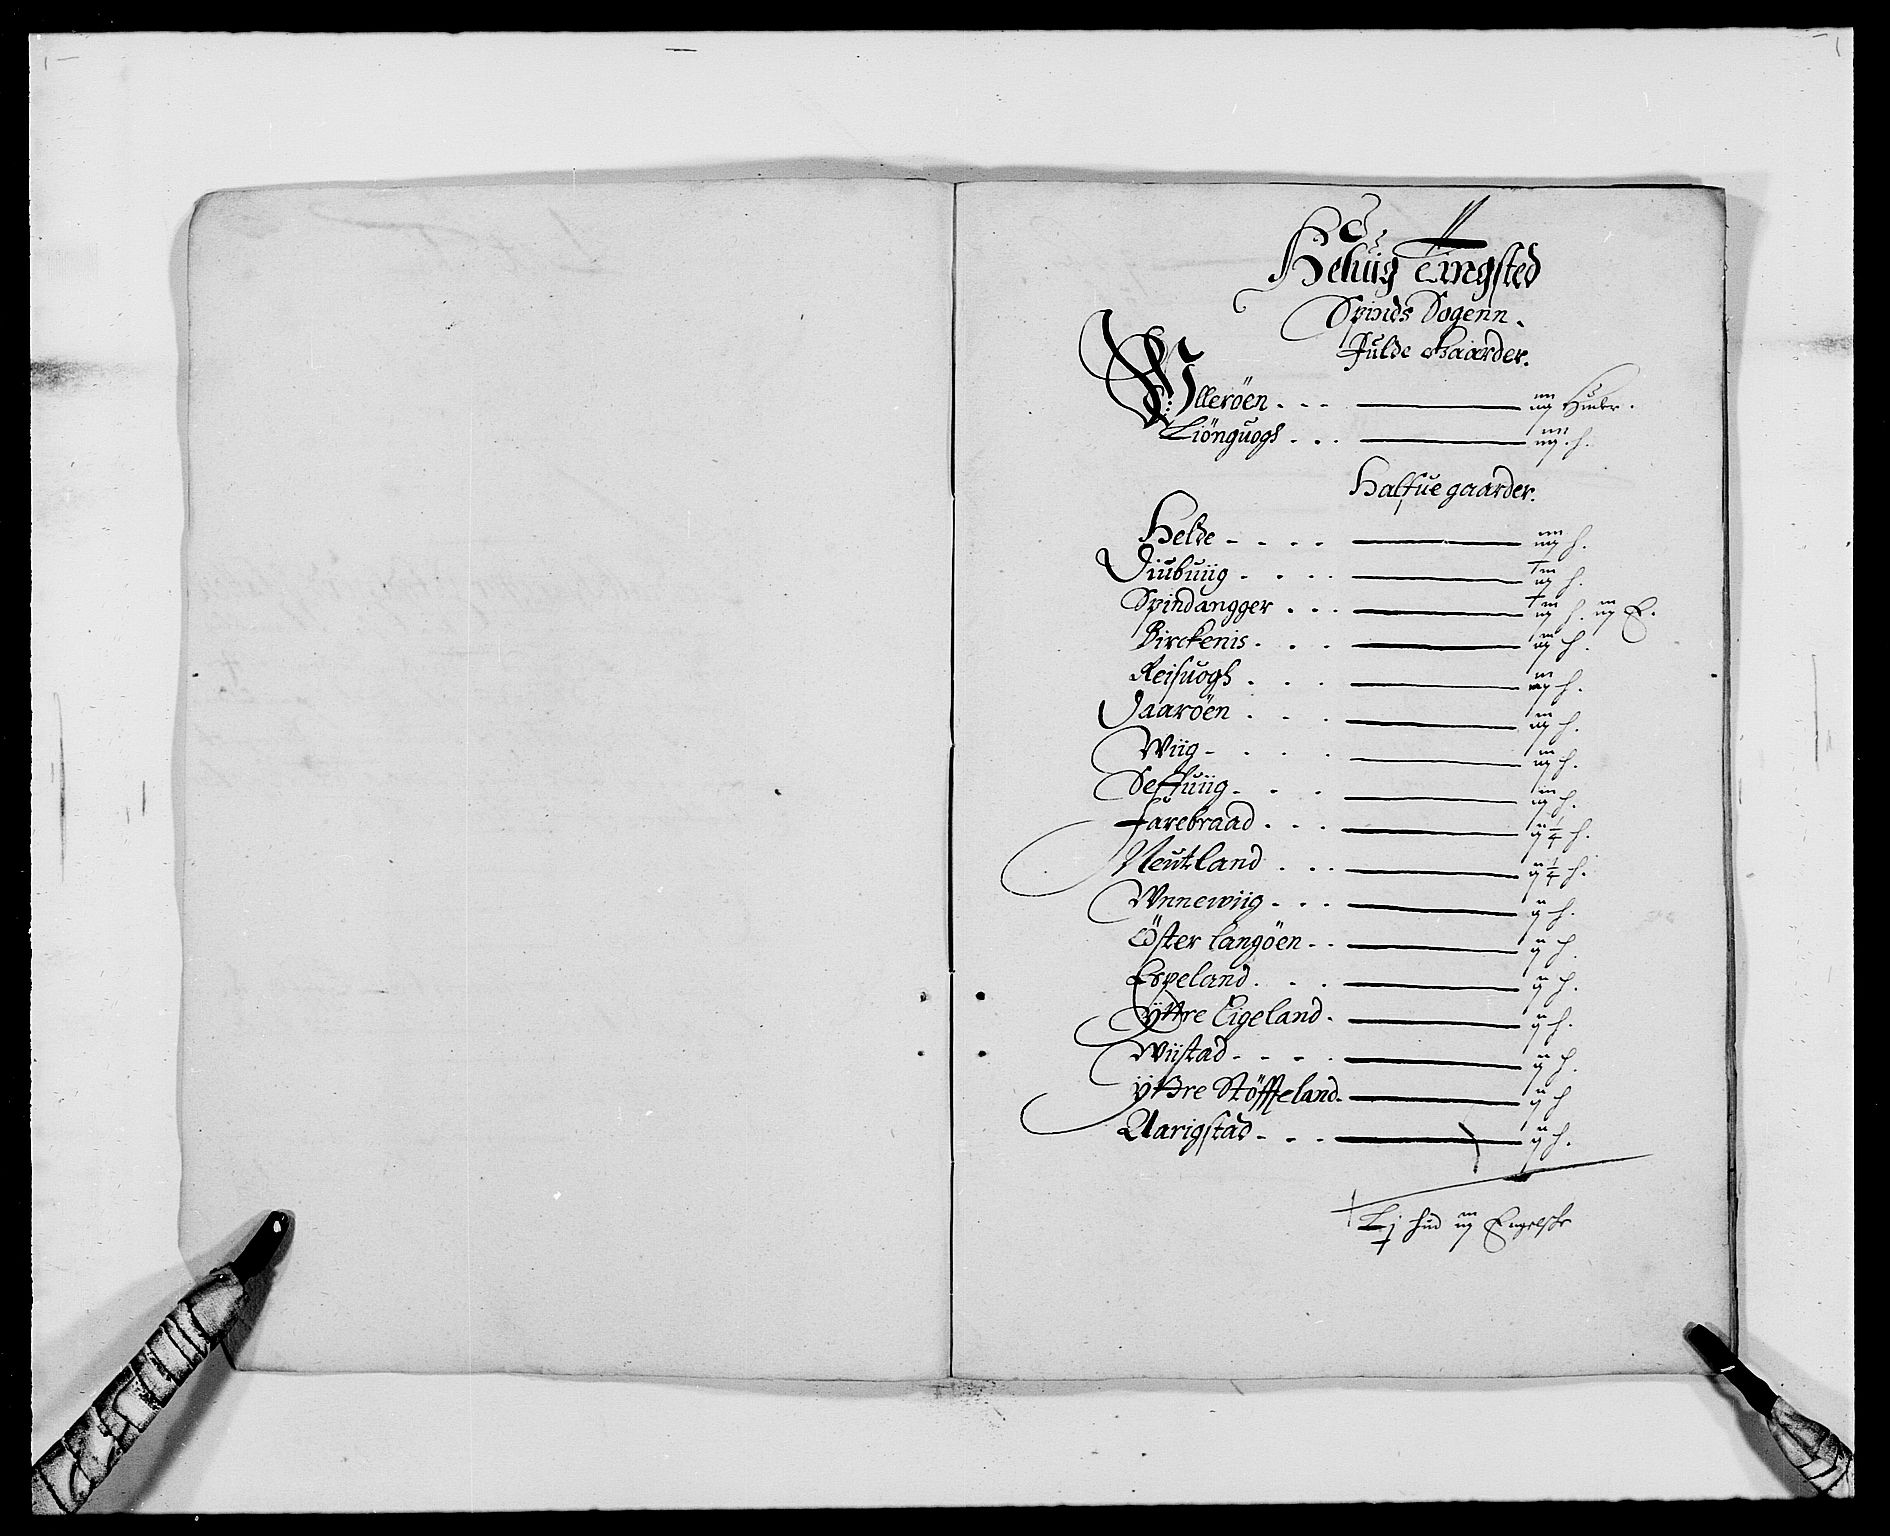 Heluiig Tingsted
Spinds Sogenn.
Fulde Gaarder.
Ullerøen. . . iiij Huder.
Liönguogh . . . iiij h.
Halfue gaarder.
Helde - - - - iiij h.
Jiubuiig . . . . h.
Spindangger . . . h. iij E.
Birckenis . . . iij h.
Reisuogh . . . iij h.
Jaaröen . . . iij h.
Wiig - . . . iij h.
Seffuiig . . . iij h.
Farebraad . . . ij 1/4 h.
Neutland . . . ij 1/4 h.
Wnnewiig . . . ij h.
Öster langöen . . ij h.
Espeland . . . ij h.
ÿttre Eigeland . ij h.
Wiistad . . . . ij h.
ÿttre Stöffeland . ij h
Aarigstad . . . ij h.
hud iij Engelske